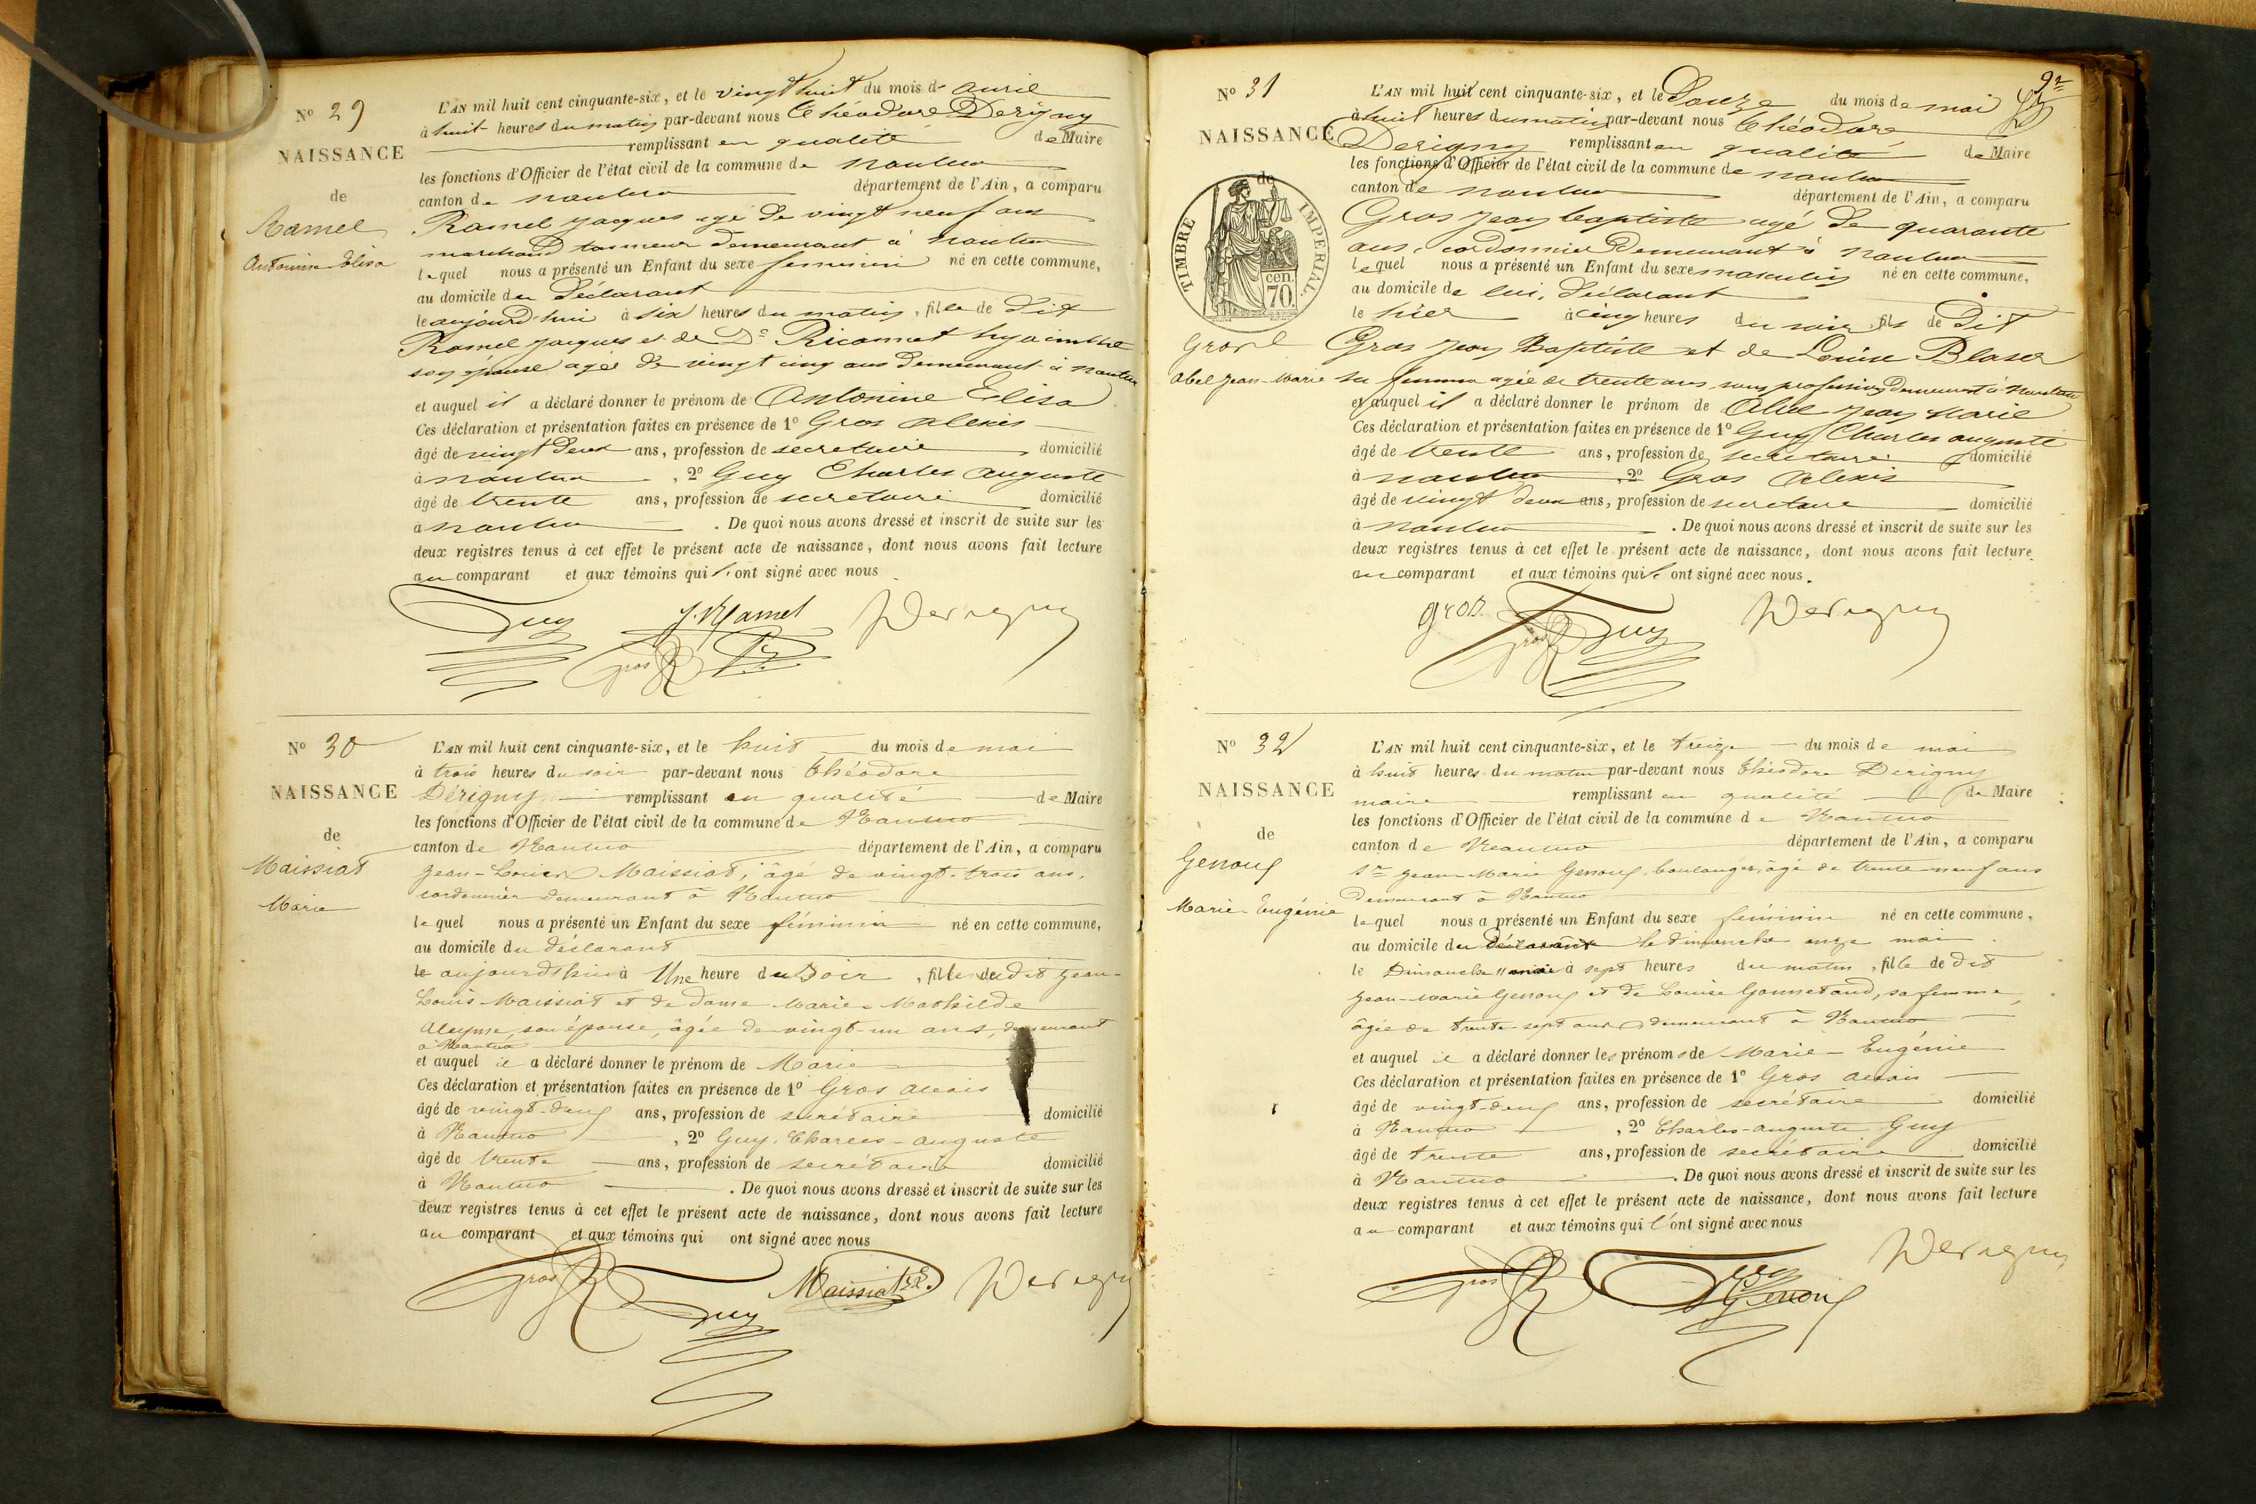 N° 29
NAISSANCE
de
Ramel
Antonine Elisa
L'AN mil huit cent cinquante-six, et le vingt huit du mois d'avril
à huit heures du matin par-devant nous Théodore Derigny
remplissant en qualité de Maire
les fonctions d'Officier de l'état civil de la commune de nantua
canton de nantua département de l'Ain, a comparu
Ramel jacques agé de vingt neuf ans
marchand tanneur demeurant à nantua
lequel nous a présenté un Enfant du sexe feminin né en cette commune,
au domicile du déclarant
le aujourd'hui à six heures du matin, fille de dit
Ramel jacques et de De Ricannet hyacinthe
son épouse agée de vingt cinq ans demeurant à nantua
et auquel il a déclaré donner le prénom de Antonine Elisa
Ces déclaration et présentation faites en présence de 1° Gros Alexis
âgé de vingt deux ans, profession de secretaire domicilié
à nantua, 2° Guy Charles auguste
âgé de trente ans, profession de secretaire domicilié
à nantua. De quoi nous avons dressé et inscrit de suite sur les
deux registres tenus à cet effet le présent acte de naissance, dont nous avons fait lecture
au comparant et aux témoins qui l'ont signé avec nous
Guy J. Ramel Derigny
gros
N° 30
NAISSANCE
de
Maissiat
Marie
L'AN mil huit cent cinquante-six, et le huit du mois de mai
à trois heures du soir par-devant nous Théodore
Dérigny remplissant en qualité de Maire
les fonctions d'Officier de l'état civil de la commune de Nantua
canton de Nantua département de l'Ain, a comparu
Jean-Louis Maissiat, âgé de vingt-trois ans,
cordonnier demeurant à Nantua
lequel nous a présenté un Enfant du sexe féminin né en cette commune,
au domicile du déclarant
le aujourd'hui à Une heure du Soir, fille de dit Jean-
Louis Maissiat et de dame Marie-Mathilde
Aleyme, son épouse, âgée de vingt-un ans, demeurant
à Nantua
et auquel il a déclaré donner le prénom de Marie
Ces déclaration et présentation faites en présence de 1° Gros alexis
âgé de vingt-deux ans, profession de secrétaire domicilié
à Nantua, 2° Guy, Charles-auguste
âgé de trente ans, profession de secrétaire domicilié
à Nantua. De quoi nous avons dressé et inscrit de suite sur les
deux registres tenus à cet effet le présent acte de naissance, dont nous avons fait lecture
au comparant et aux témoins qui ont signé avec nous
gros Guy Maissiat Derigny
N° 31
NAISSANCE
de
TIMBRE IMPERIAL
cen. 70.
Gros
Abel Jean-Marie
L'AN mil huit cent cinquante-six, et le Douze du mois de mai
à huit heures du matin par-devant nous Théodore
Derigny remplissant en qualité de Maire
les fonctions d'Officier de l'état civil de la commune de nantua
canton de nantua département de l'Ain, a comparu
Gros jean baptiste agé de quarante
ans, cordonnier Demeurant à nantua
lequel nous a présenté un Enfant du sexe masculin né en cette commune,
au domicile de lui, déclarant
le hier à cinq heures du soir, fils de Dit
Gros jean Baptiste et de Louise Blaser
sa femme agée de trente ans, sans profession Demeurant à Nantua
et auquel il a déclaré donner le prénom de Abel jean marie
Ces déclaration et présentation faites en présence de 1° Guy Charles auguste
âgé de trente ans, profession de secretaire domicilié
à nantua, 2° Gros Alexis
âgé de vingt deux ans, profession de secretaire domicilié
à nantua. De quoi nous avons dressé et inscrit de suite sur les
deux registres tenus à cet effet le présent acte de naissance, dont nous avons fait lecture
au comparant et aux témoins qui l'ont signé avec nous.
gros gros Guy Derigny
N° 32
NAISSANCE
de
Genoux
Marie-Eugénie
L'AN mil huit cent cinquante-six, et le treize du mois de mai
à huit heures du matin par-devant nous Théodore Derigny
maire remplissant en qualité de Maire
les fonctions d'Officier de l'état civil de la commune de Nantua
canton de Nantua département de l'Ain, a comparu
Sr Jean-Marie Genoux, boulanger, âgé de trente neuf ans
Demeurant à Nantua
lequel nous a présenté un Enfant du sexe féminin né en cette commune,
au domicile du déclarant le dimanche onze mai
le Dimanche 11 mai à sept heures du matin, fille de dit
Jean-Marie Genoux et de Louise Gonnetand, sa femme,
âgée de trente-sept ans demeurant à Nantua
et auquel il a déclaré donner les prénoms de Marie-Eugénie
Ces déclaration et présentation faites en présence de 1° Gros alexis
âgé de vingt-deux ans, profession de secrétaire domicilié
à Nantua, 2° Charles-auguste Guy
âgé de trente ans, profession de secrétaire domicilié
à Nantua. De quoi nous avons dressé et inscrit de suite sur les
deux registres tenus à cet effet le présent acte de naissance, dont nous avons fait lecture
au comparant et aux témoins qui l'ont signé avec nous
gros Guy Genoux Derigny